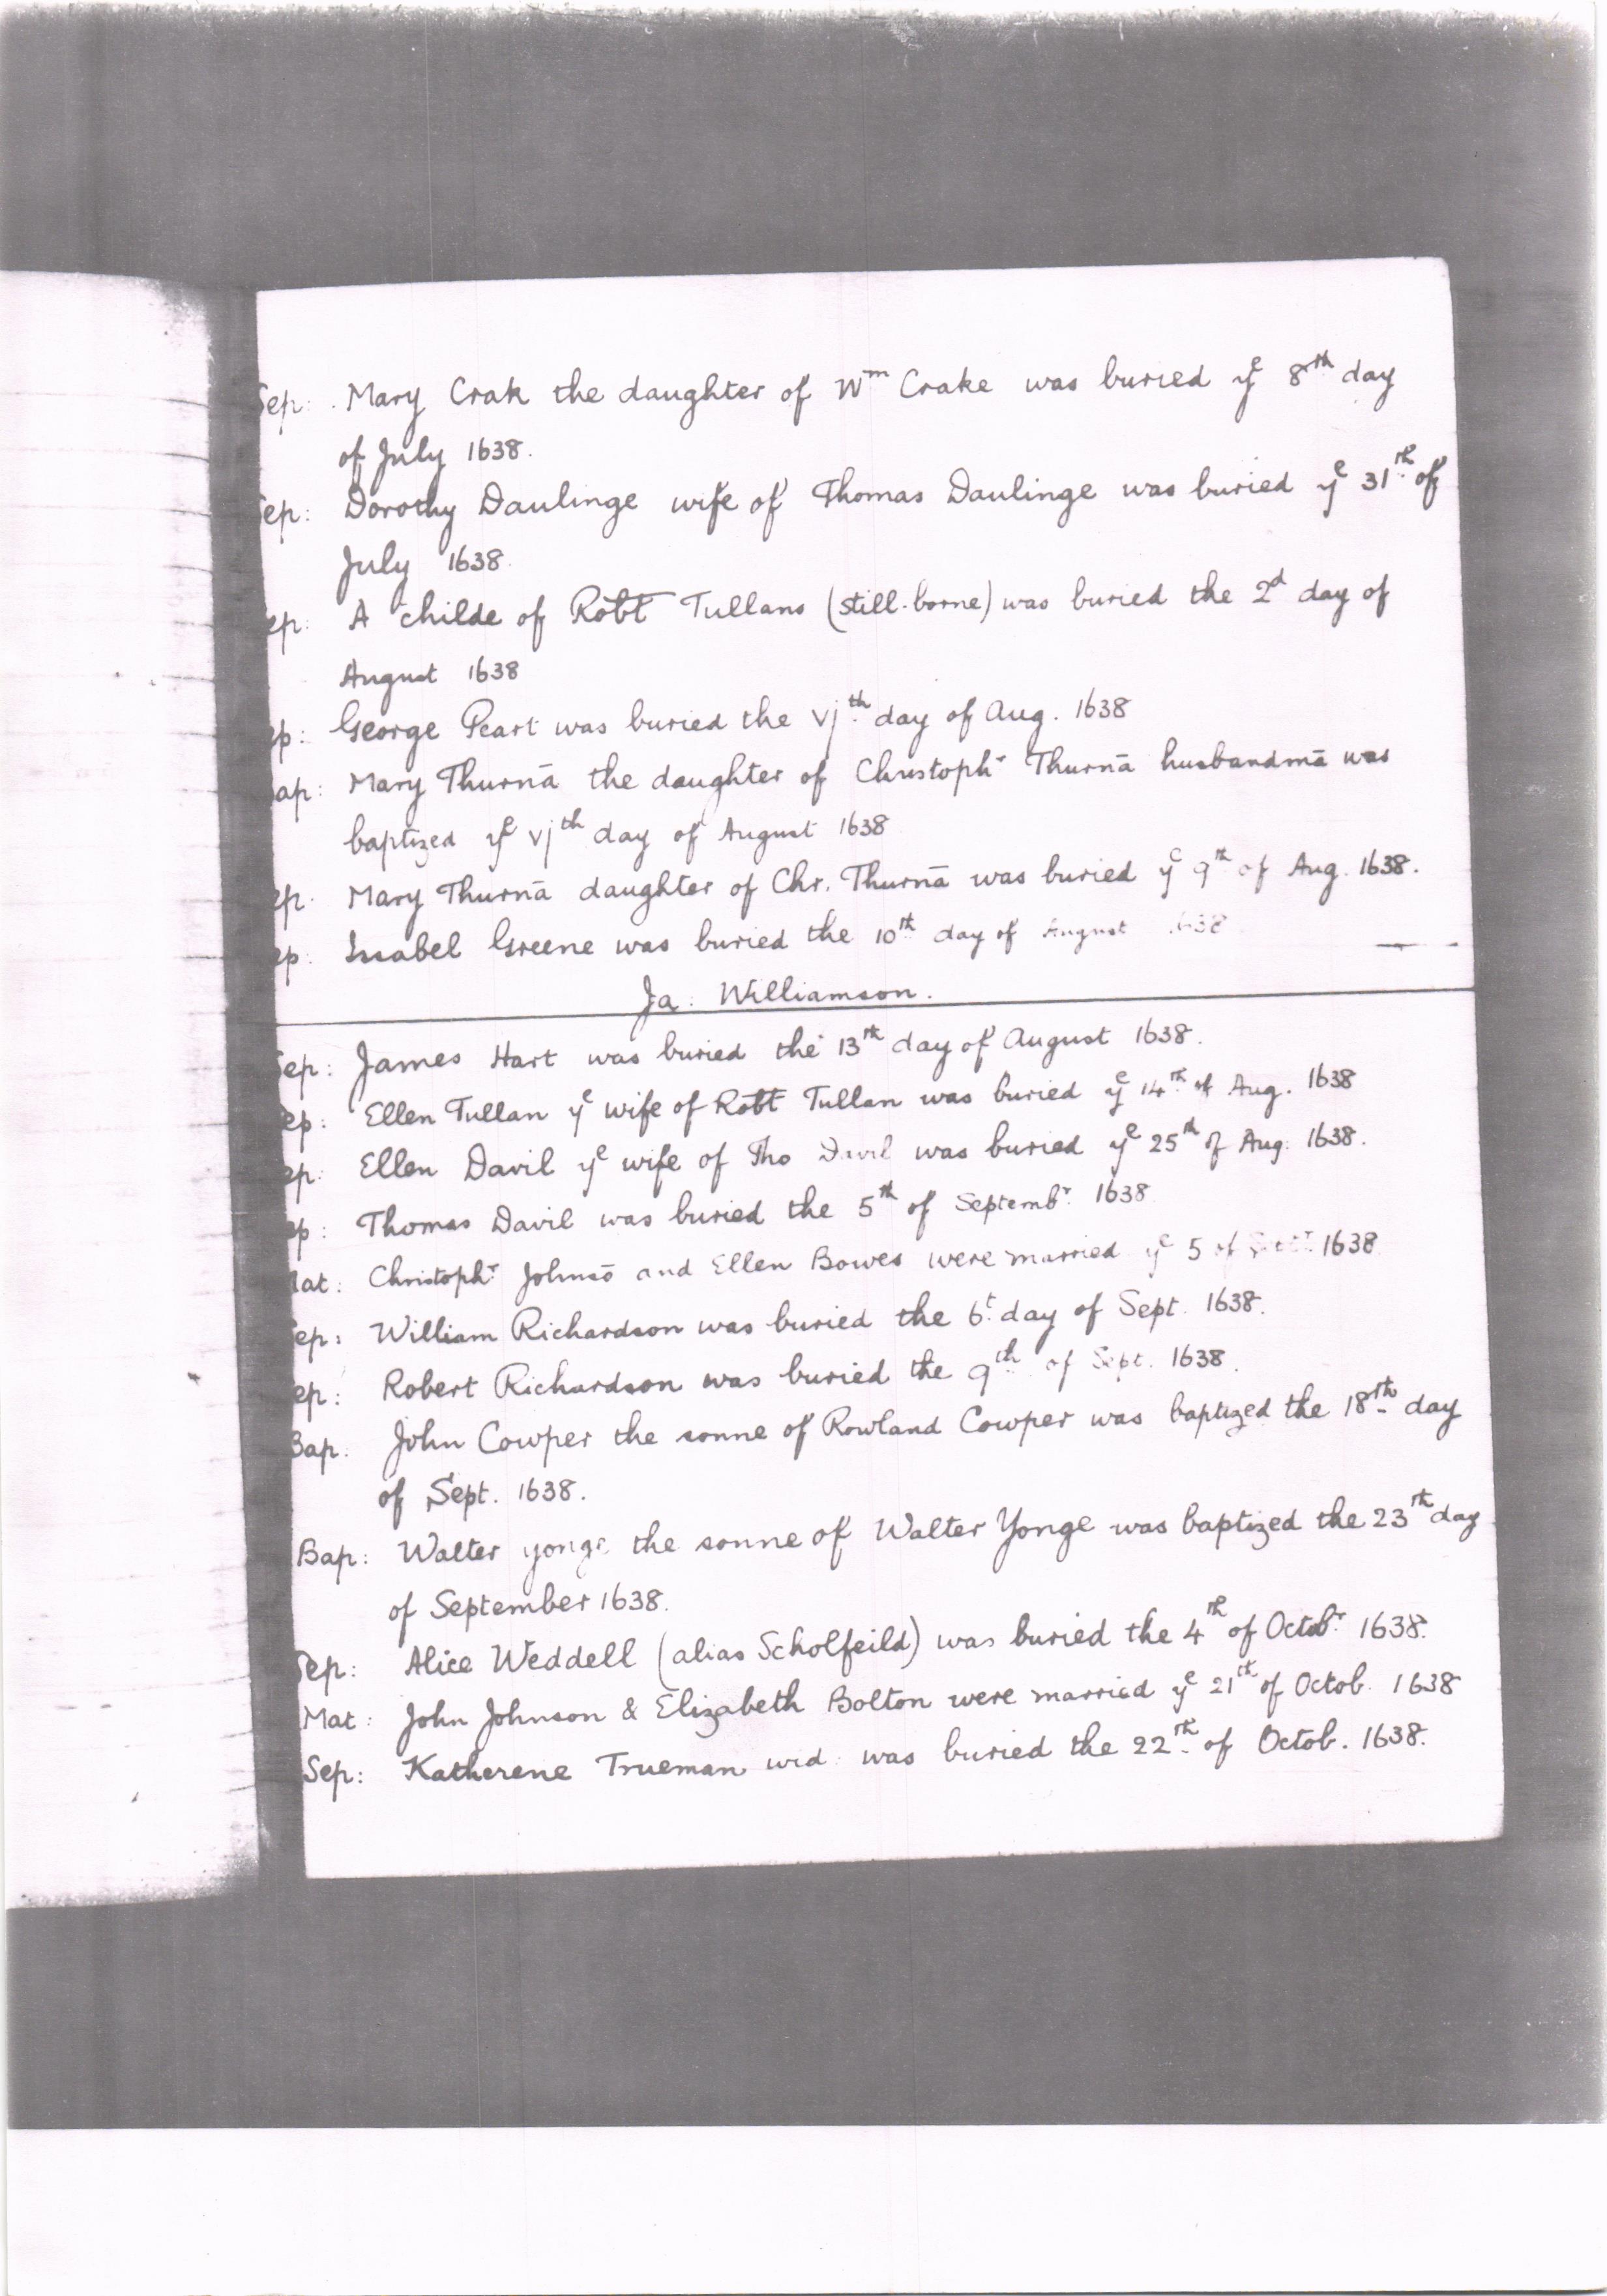 Sep: Mary Crak the daughter of Wm Crake was buried ye 8th day
of July 1638.
Sep: Dorothy Daulinge wife of Thomas Daulinge was buried ye 31th of
July 1638
ep: A childe of Robt Tullans (still-borne) was buried the 2d day of
August 1638
ep: George Peart was buried the vjth day of Aug. 1638
Bap: Mary Thurnā the daughter of Christophr Thurnā husbandmā was
baptized ye vjth day of August 1638
ep. Mary Thurnā daughter of Chr. Thurnā was buried ye 9th of Aug. 1638.
ep. Issabel Greene was buried the 10th day of August 1638
Ja: Williamson.
Sep: James Hart was buried the 13th day of August 1638.
ep: Ellen Tullan ye wife of Robt Tullan was buried ye 14th of Aug. 1638
ep: Ellen Davil ye wife of Tho Davil was buried ye 25th of Aug: 1638.
ep: Thomas Davil was buried the 5th of Septembr 1638
Mat: Christophr Johnsō and Ellen Bowes were married ye 5 of 1638
Sep: William Richardson was buried the 6t day of Sept. 1638.
ep: Robert Richardson was buried the 9th of Sept. 1638.
Bap: John Cowper the sonne of Rowland Cowper was baptized the 18th day
of Sept. 1638.
Bap: Walter yonge the sonne of Walter Yonge was baptized the 23th day
of September 1638.
Sep: Alice Weddell (alias Scholfeild) was buried the 4th of Octobr 1638.
Mat: John Johnson & Elizabeth Bolton were married ye 21th of Octob. 1638
Sep: Katherene Trueman wid: was buried the 22th of Octob. 1638.